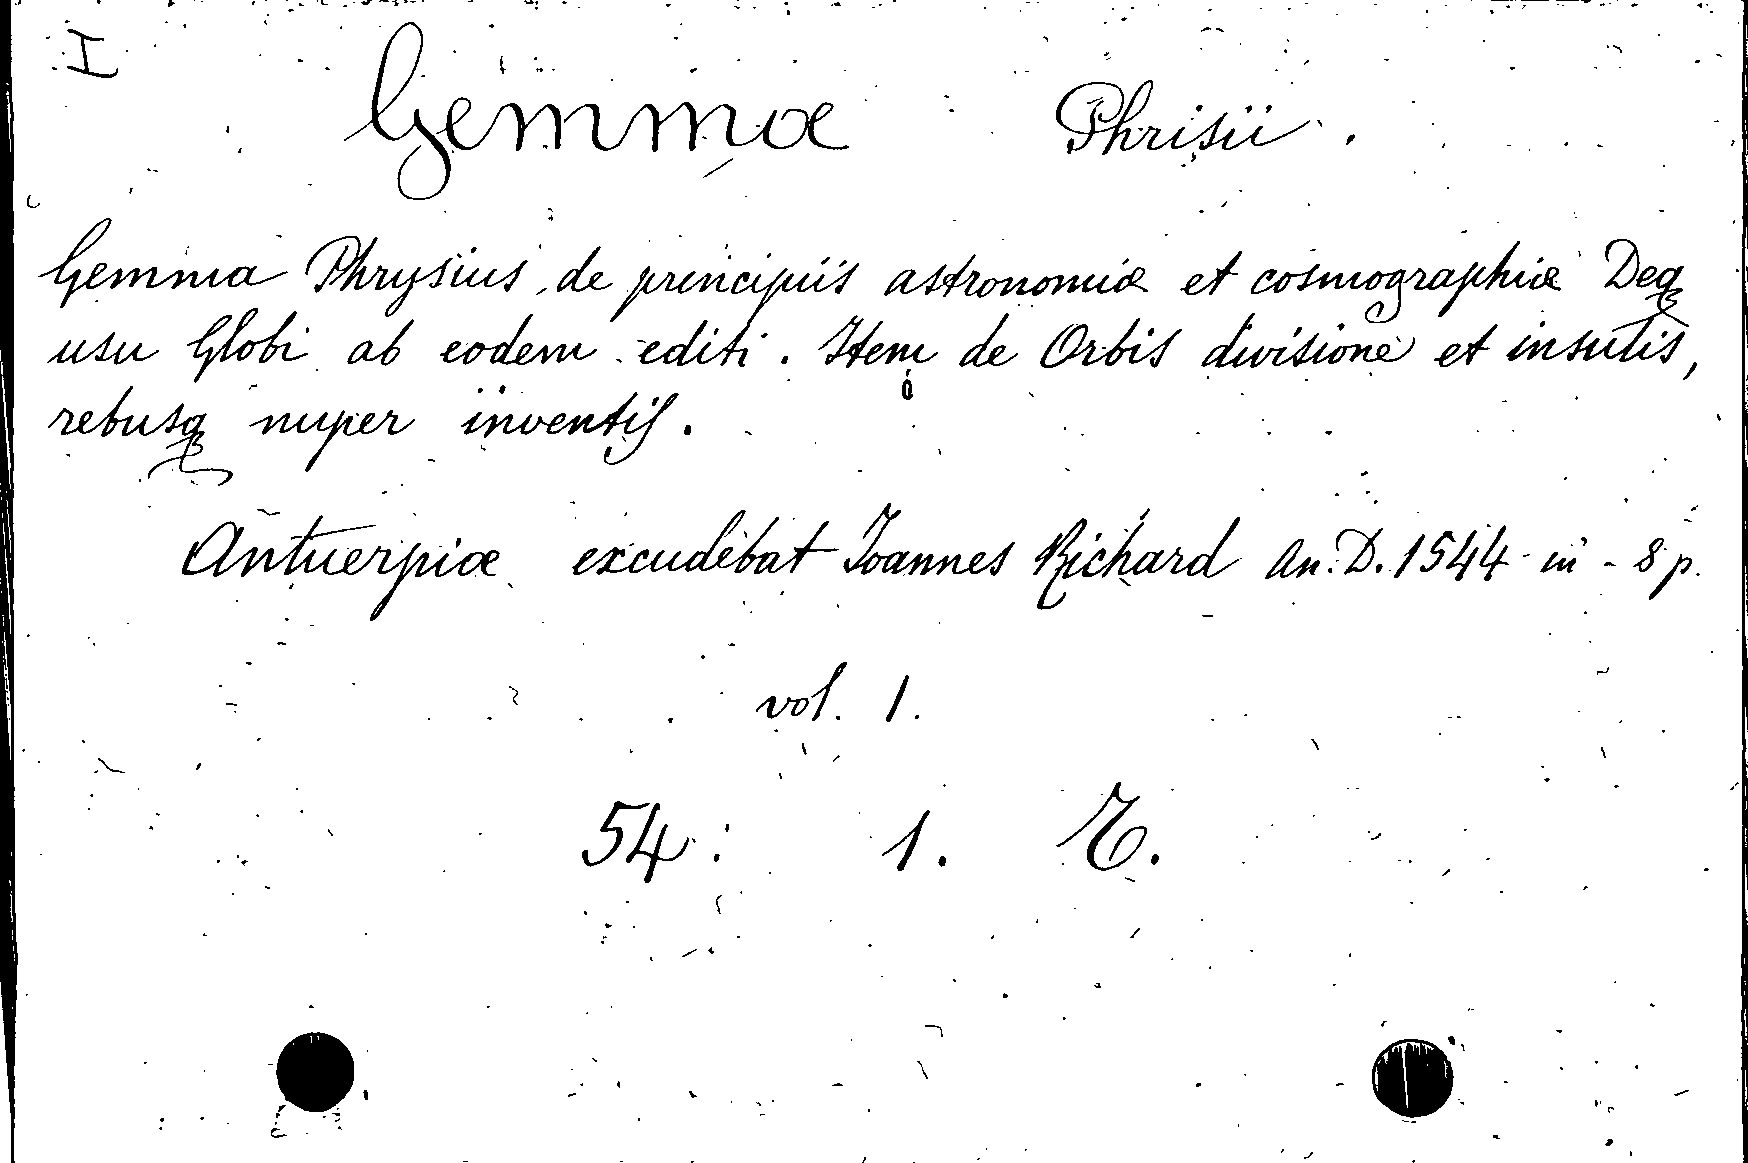 I
Gemmæ Phrisii.
Gemma Phrysius, de principiis astronomiæ et cosmographiæ Deq
usu Globi ab eodem editi. Item de Orbis divisione et insulis,
rebusq nuper inventis.
Antuerpiæ excudebat Joannes Richard An. D. 1544 in-8 p.
vol. 1.
54: 1. E.